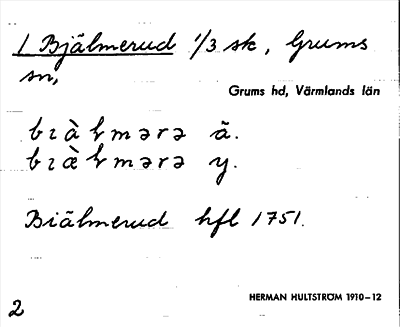 1 Bjälmerud 1/3 sk, Grums
sn,
Grums hd, Värmlands län
bɪὰɫmərə ä.
bɪæ̀ɫmərə y.
Biälmerud hfl 1751.
HERMAN HULTSTRÖM 1910–12
2